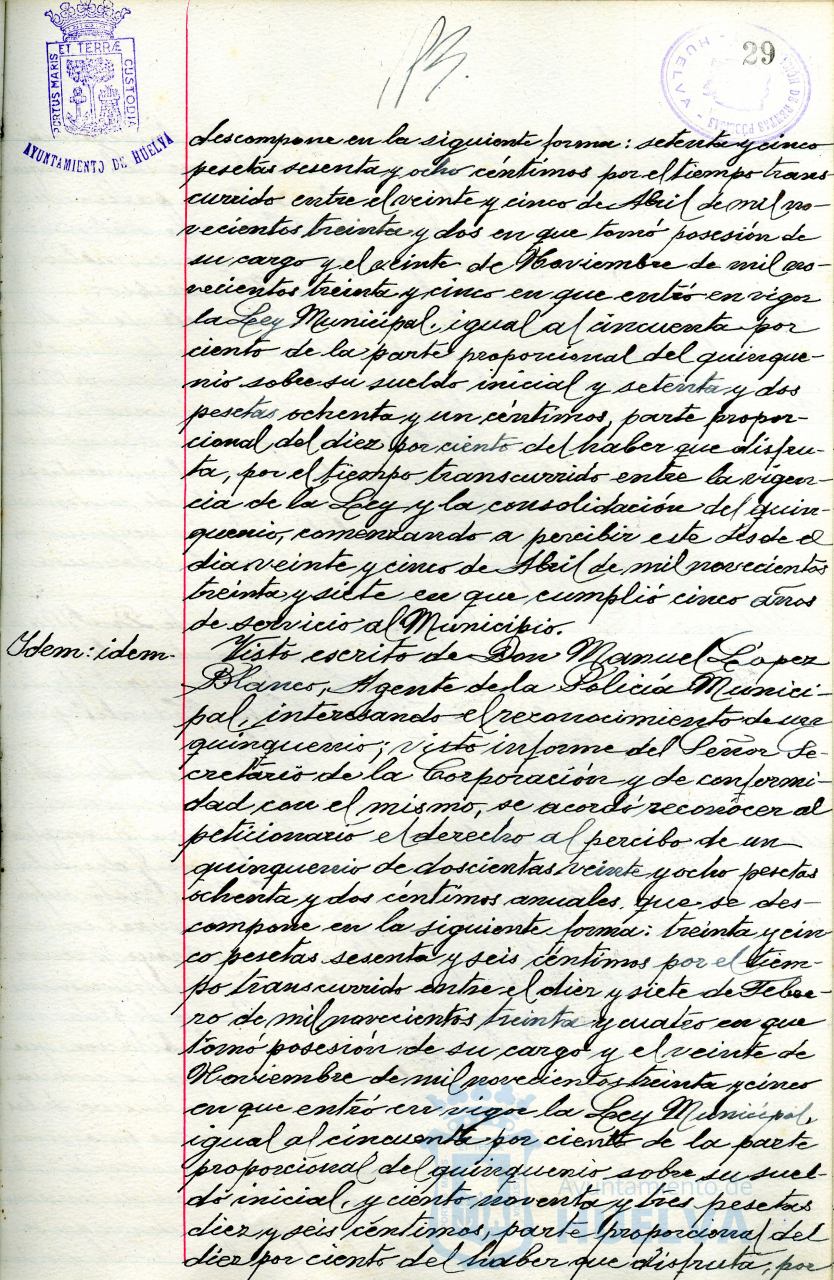 29
ET TERRÆ
PORTUS MARIS
CUSTODIA
AYUNTAMIENTO DE HUELVA
HUELVA
descompone en la siguiente forma: setenta y cinco
pesetas sesenta y ocho céntimos por el tiempo trans
currido entre el veinte y cinco de Abril de mil no-
vecientos treinta y dos en que tomó posesión de
su cargo y el veinte de Noviembre de mil no-
vecientos treinta y cinco en que entró en vigor
la Ley Municipal, igual al cincuenta por
ciento de la parte proporcional del quinque-
nio sobre su sueldo inicial y setenta y dos
pesetas ochenta y un céntimos, parte propor-
cional del diez por ciento del haber que disfru-
ta, por el tiempo transcurrido entre la vigen-
cia de la Ley y la consolidación del quin-
quenio, comenzando a percibir este desde el
dia veinte y cinco de Abril de mil novecientos
treinta y siete en que cumplió cinco años
de servicio al Municipio.
Idem: idem-
Visto escrito de Don Manuel López
Blanco, Agente de la Policía Munici-
pal, interesando el reconocimiento de un
quinquenio; visto informe del Señor Se-
cretario de la Corporación y de conformi-
dad con el mismo, se acordó reconocer al
peticionario el derecho al percibo de un
quinquenio de doscientas veinte y ocho pesetas
ochenta y dos céntimos anuales, que se des-
compone en la siguiente forma: treinta y cin-
co pesetas sesenta y seis céntimos por el tiem-
po transcurrido entre el diez y siete de Febre-
ro de mil novecientos treinta y cuatro en que
tomó posesión de su cargo y el veinte de
Noviembre de mil novecientos treinta y cinco
en que entró en vigor la Ley Municipal,
igual al cincuenta por ciento de la parte
proporcional del quinquenio sobre su suel-
do inicial, y ciento noventa y tres pesetas
diez y seis céntimos, parte proporcional del
diez por ciento del haber que disfruta, por
Ayuntamiento de
HUELVA